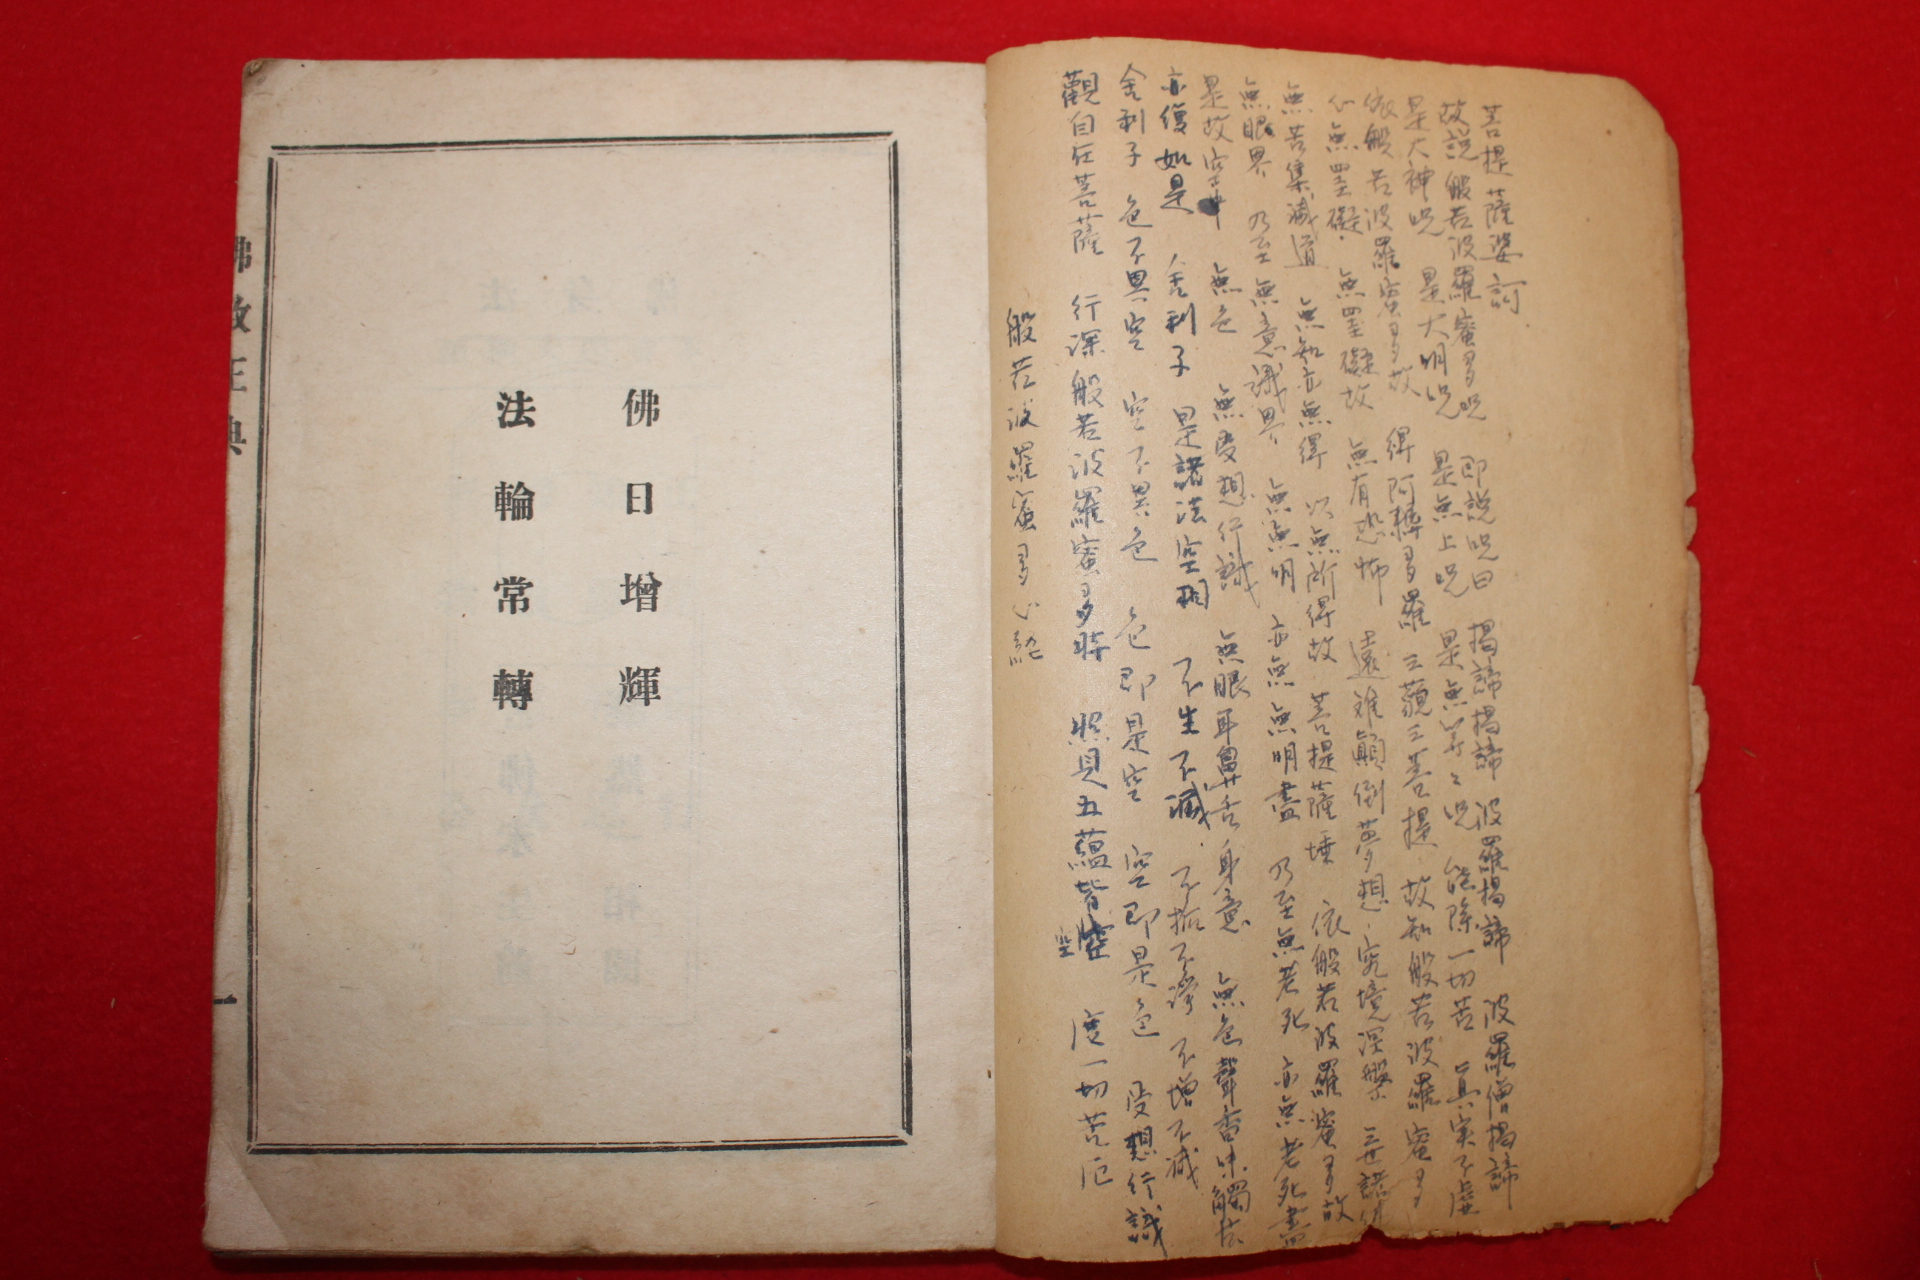 佛教正典
一
佛日增輝
法輪常轉
般若波羅蜜多心経
觀自在菩薩 行深般若波羅蜜多時 照見五蘊皆空 度一切苦厄
空
舍利子 色不異空 空不異色 色即是空 空即是色 受想行識
亦復如是 舍利子 是諸法空相 不生不滅 不垢不淨 不增不減
是故空中 無色 無受想行識 無眼耳鼻舌身意 無色聲香味觸法
無眼界 乃至無意識界 無無明 亦無無明盡 乃至無老死 亦無老死盡
無苦集滅道 無知亦無得 以無所得故 菩提薩埵 依般若波羅蜜多故
心無罣礙 無罣礙故 無有恐怖 遠难顚倒夢想 究境涅槃 三世諸佛
依般若波羅蜜多故 得阿耨多羅三藐三菩提 故知般若波羅蜜多
是大神呪 是大明呪 是無上呪 是無等々呪 能除一切苦 真実不虛
故説般若波羅蜜多呪 即説呪曰 揭諦揭諦 波羅揭諦 波羅僧揭諦
菩提薩婆訶